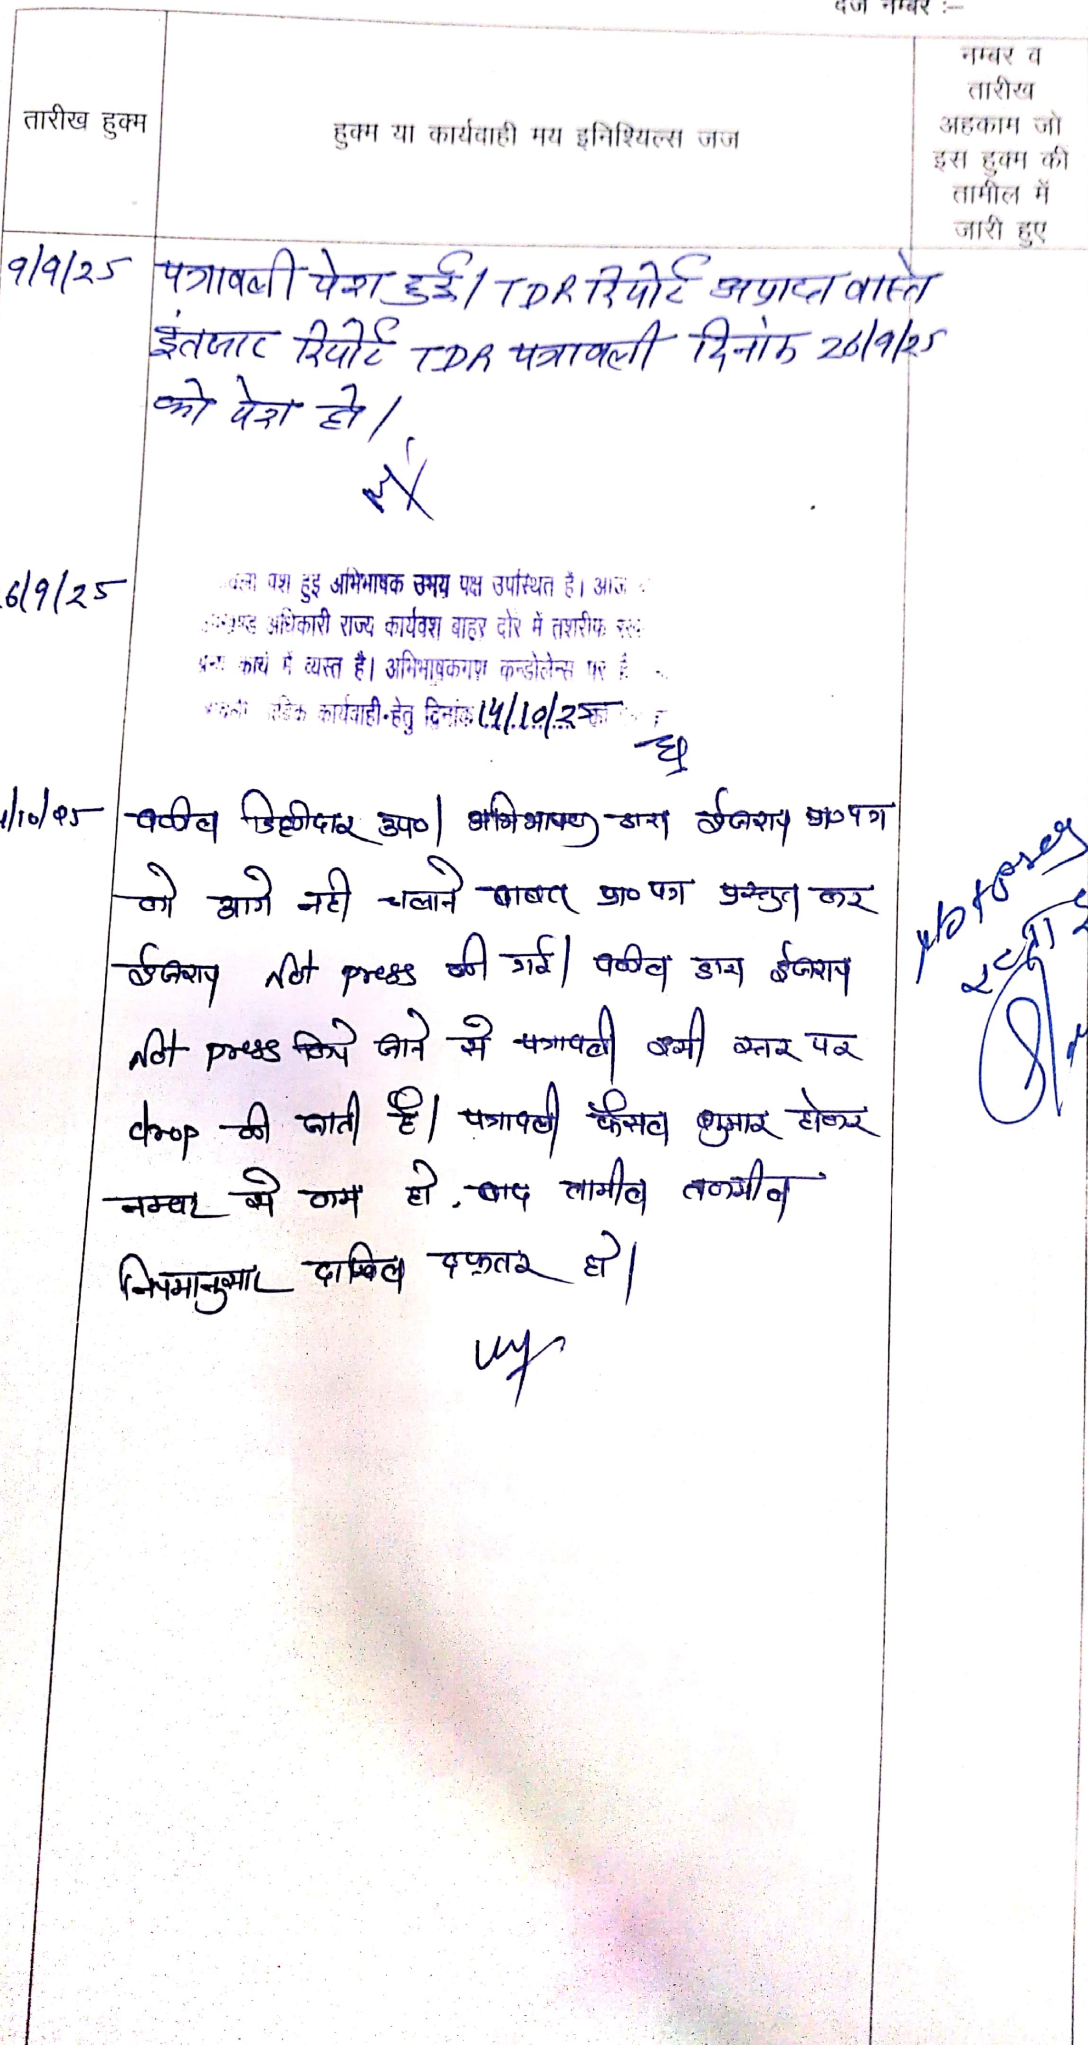 दर्ज नम्बर :–
तारीख हुक्म
हुक्म या कार्यवाही मय इनिशियल्स जज
नम्बर व
तारीख
अहकाम जो
इस हुक्म की
तामील में
जारी हुए
9/9/25 पत्रावली पेश हुई। TDR रिपोर्ट अप्राप्त वास्ते
इंतजार रिपोर्ट TDR पत्रावली दिनांक 26/9/25
को पेश हो।
6/9/25
पेश हुई अभिभाषक उभय पक्ष उपस्थित है। आज
अधिकारी राज्य कार्यवश बाहर दोरे में तशरीफ
कार्य में व्यस्त है। अभिभाषकगण कन्डोलेन्स पर है
कार्यवाही हेतु दिनांक 14/10/25 को
/10/25 वकील डिक्रीदार उप०। अभिभाषक द्वारा ईजराय प्रा० पत्र
को आगे नही चलाने बाबत प्रा० पत्र प्रस्तुत कर
ईजराय Not press की गई। वकील द्वारा ईजराय
Not press किये जाने से पत्रावली इसी स्तर पर
drop की जाती है। पत्रावली फैसल शुमार होकर
नम्बर से कम हो. बाद तामील तकमील
नियमानुसार दाखिल दफ़्तर हो।